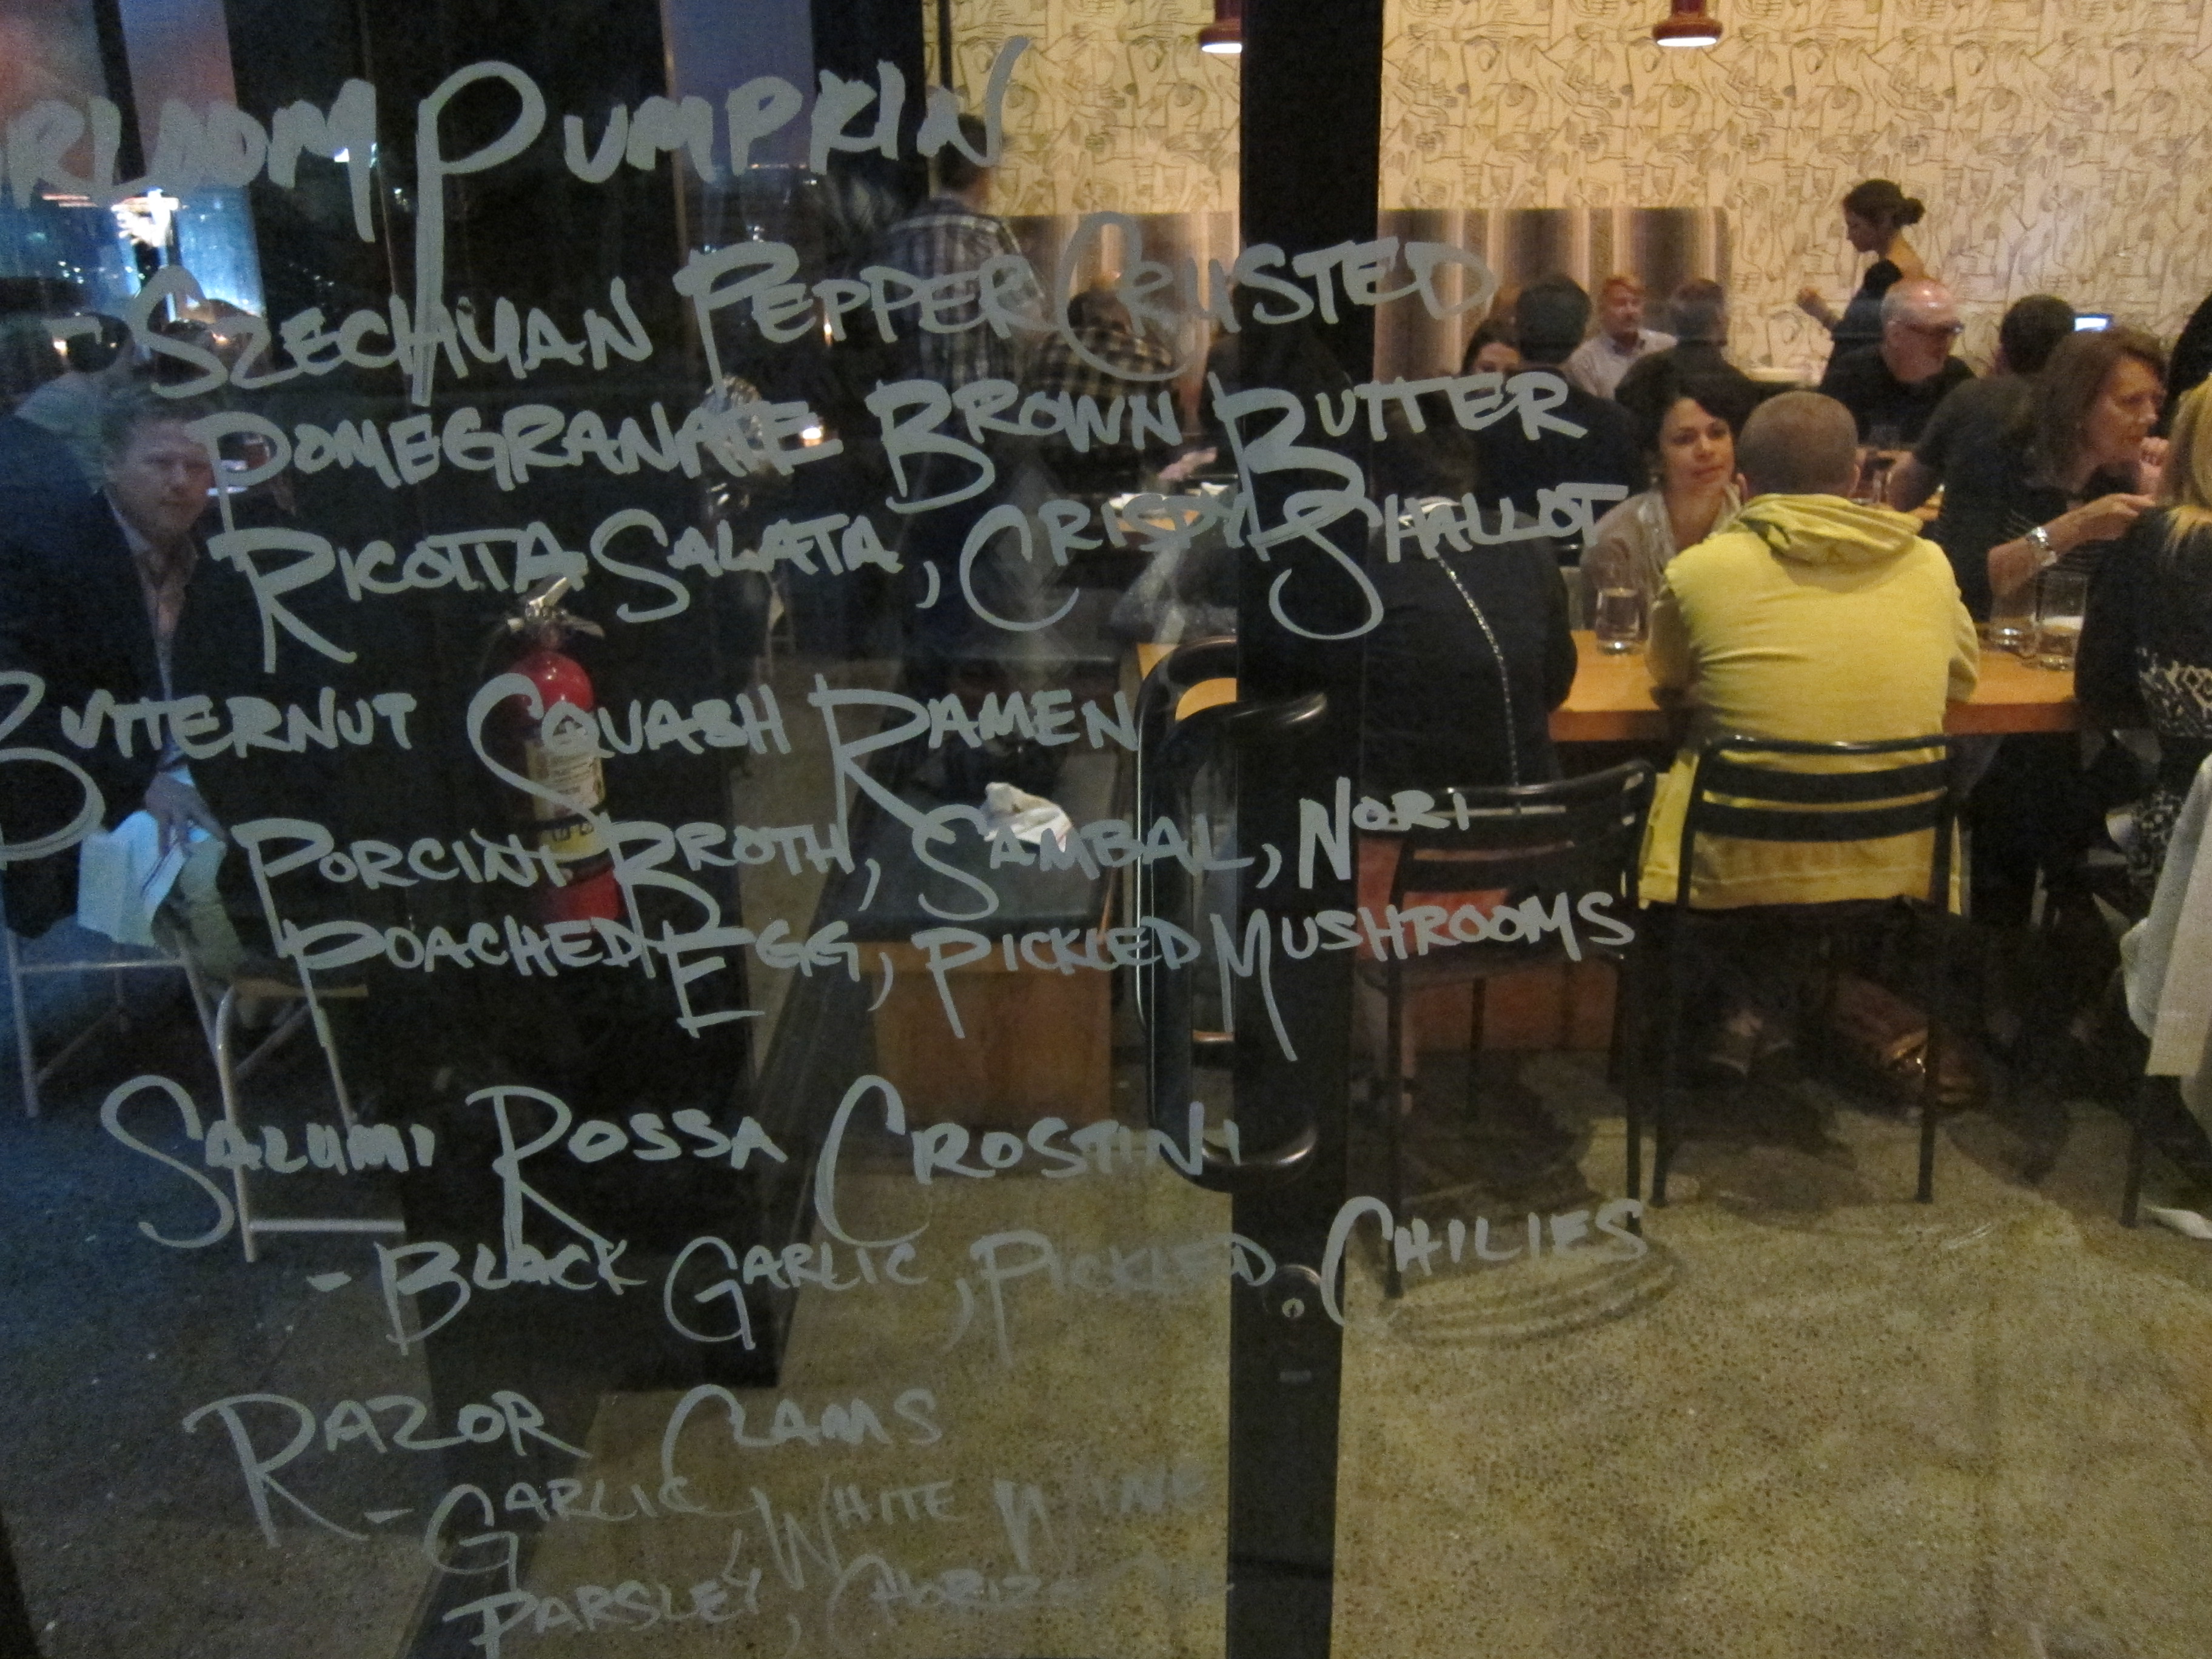 RLOOM PUMPKIN
- SZECHUAN PEPPER CRUSTED
POMEGRANATE BROWN BUTTER
RICOTTA SALATA, CRISPY SHALLOT
BUTTERNUT SQUASH RAMEN
PORCINI BROTH, SAMBAL, NORI
POACHED EGG, PICKLED MUSHROOMS
SALUMI ROSSA CROSTINI
- BLACK GARLIC, PICKLED CHILIES
RAZOR CLAMS
- GARLIC, WHITE WINE
PARSLEY, CHORIZO